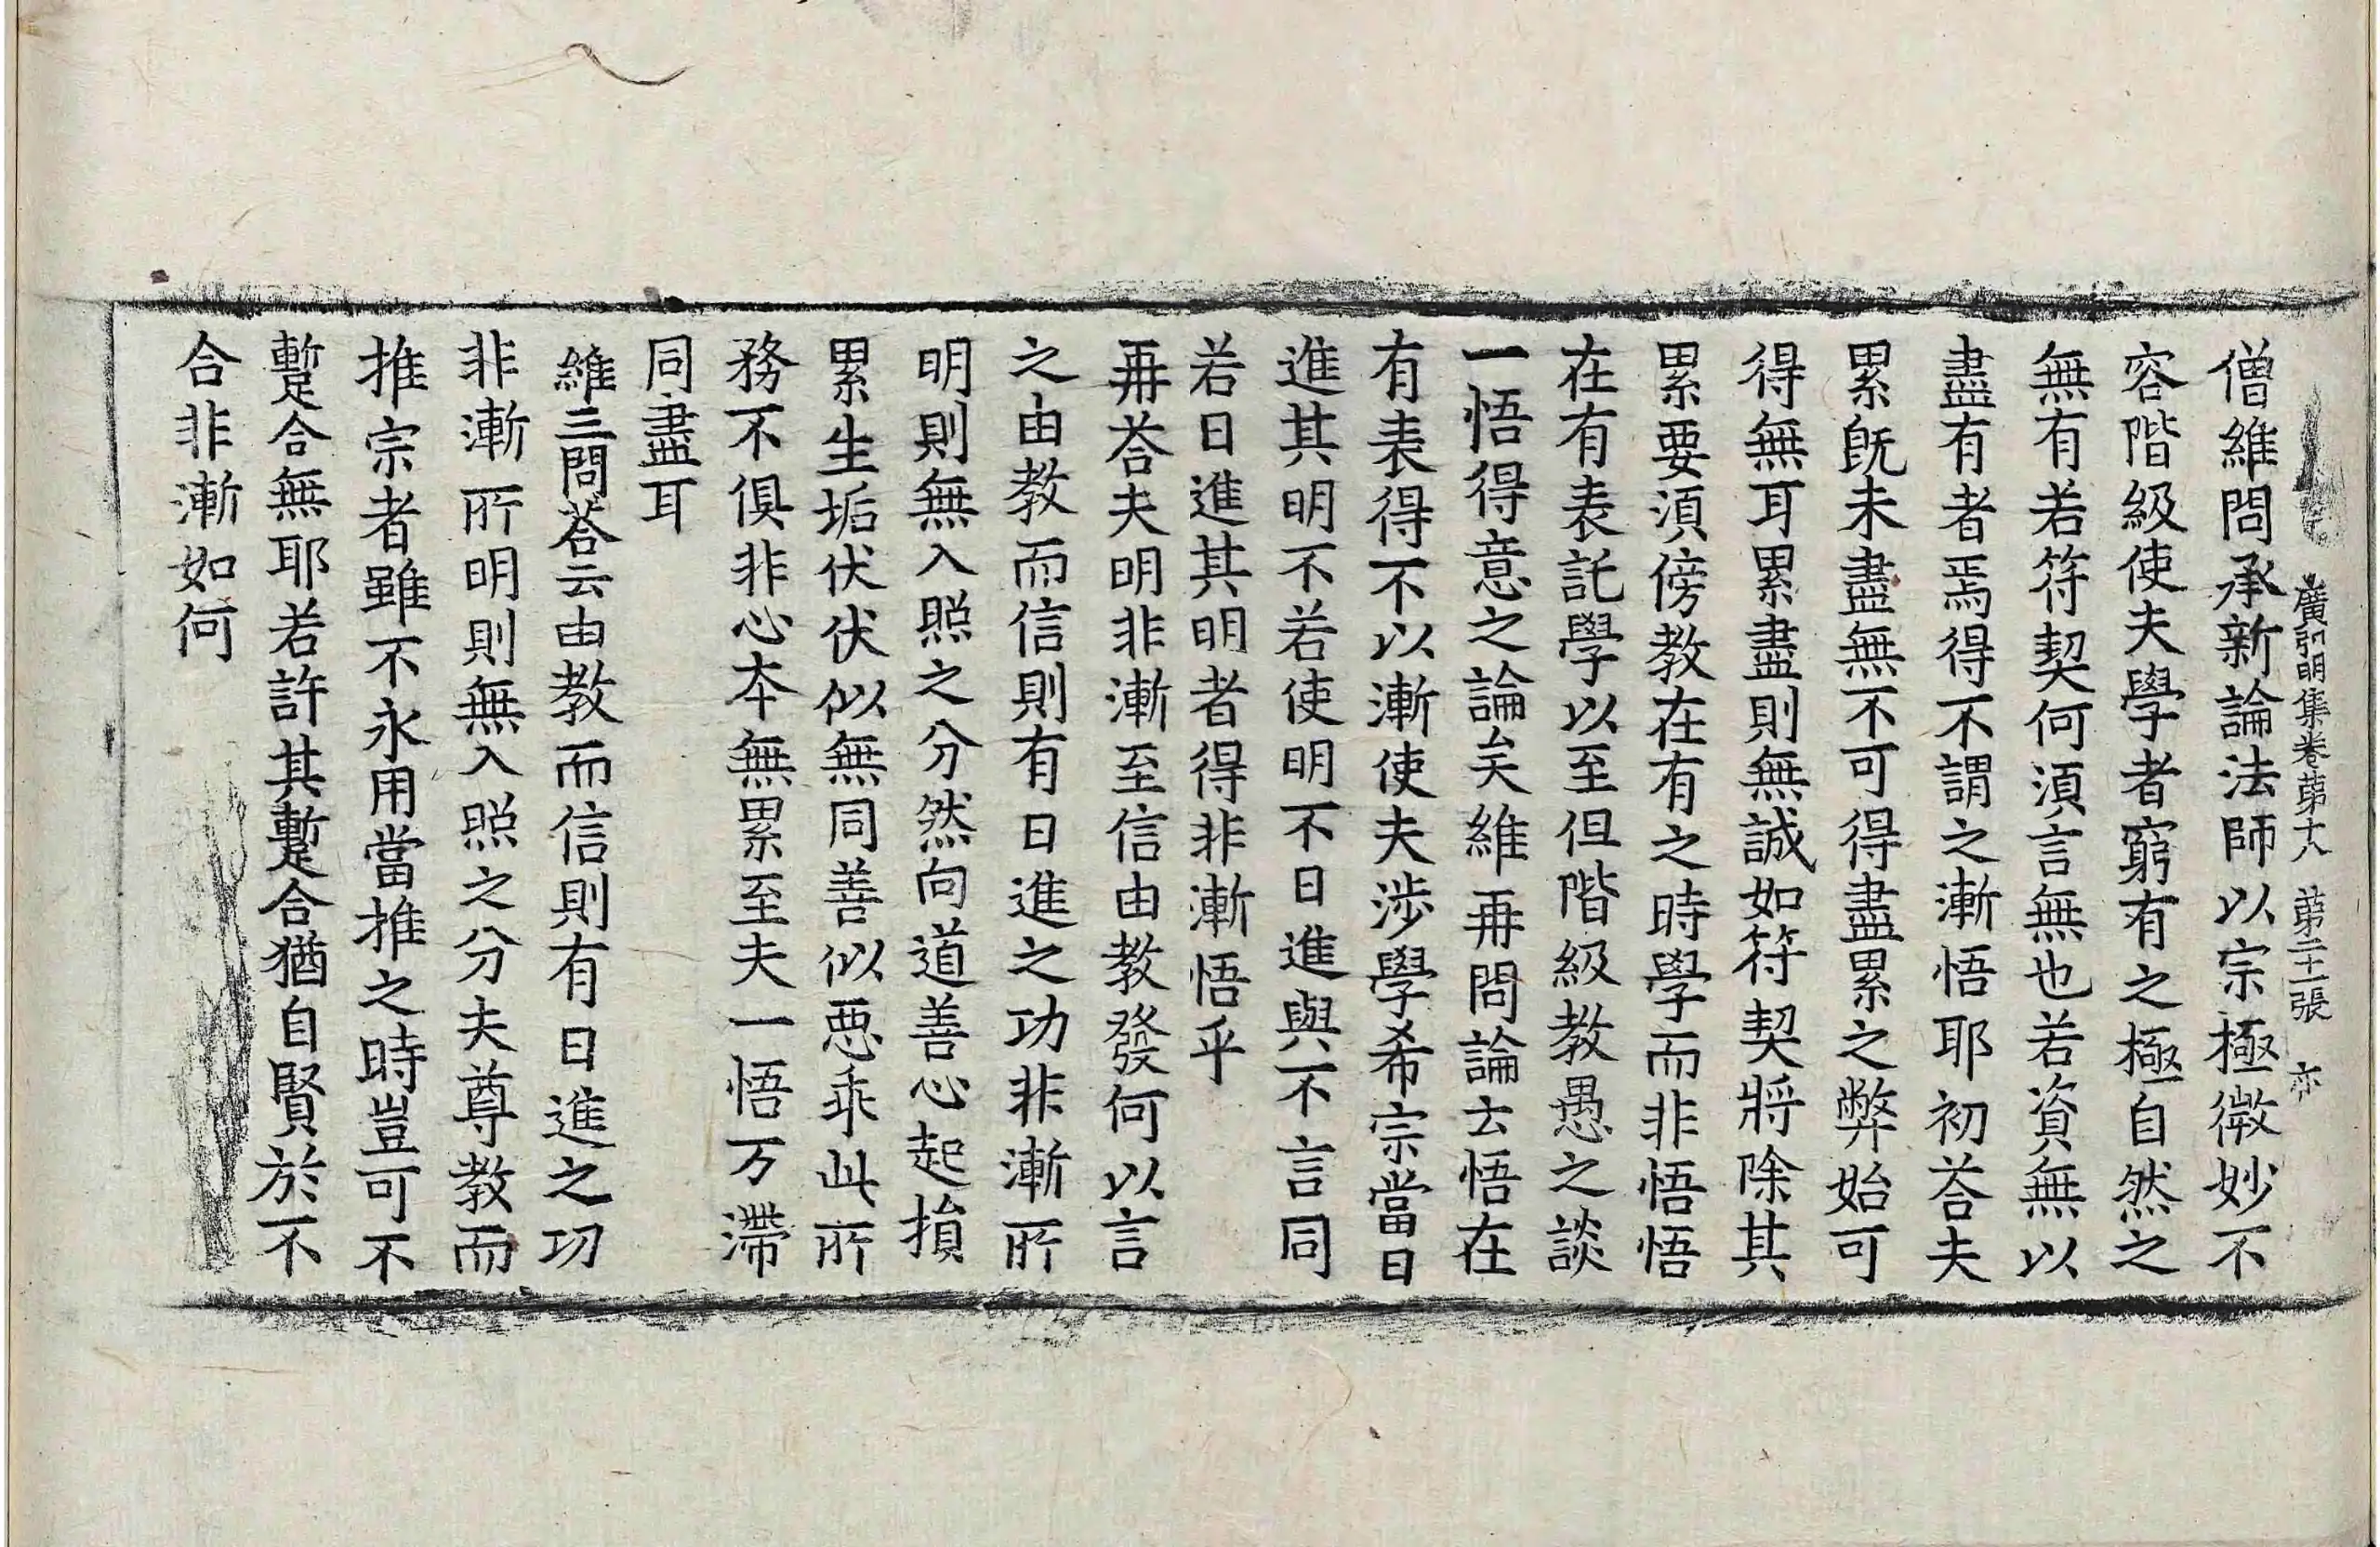 廣弘明集卷苐十八　苐二十一張　亦
僧維問承新論法師以宗極微妙不
容階級使夫學者窮有之極自然之
無有若符契何湏言無也若資無以
盡有者焉得不謂之漸悟耶初荅夫
累旣未盡無不可得盡累之弊始可
得無耳累盡則無誠如符契將除其
累要湏傍教在有之時學而非悟悟
在有表託學以至但階級教愚之談
一悟得意之論矣維再問論云悟在
有表得不以漸使夫涉學希宗當日
進其明不若使明不日進與不言同
若日進其明者得非漸悟乎
再荅夫明非漸至信由教發何以言
之由教而信則有日進之功非漸所
明則無入照之分然向道善心起損
累生垢伏伏似無同善似惡乖此所
務不俱非心本無累至夫一悟万滯
同盡耳
維三問荅云由教而信則有日進之功
非漸所明則無入照之分夫尊教而
推宗者雖不永用當推之時豈可不
蹔合無耶若許其蹔合猶自賢於不
合非漸如何